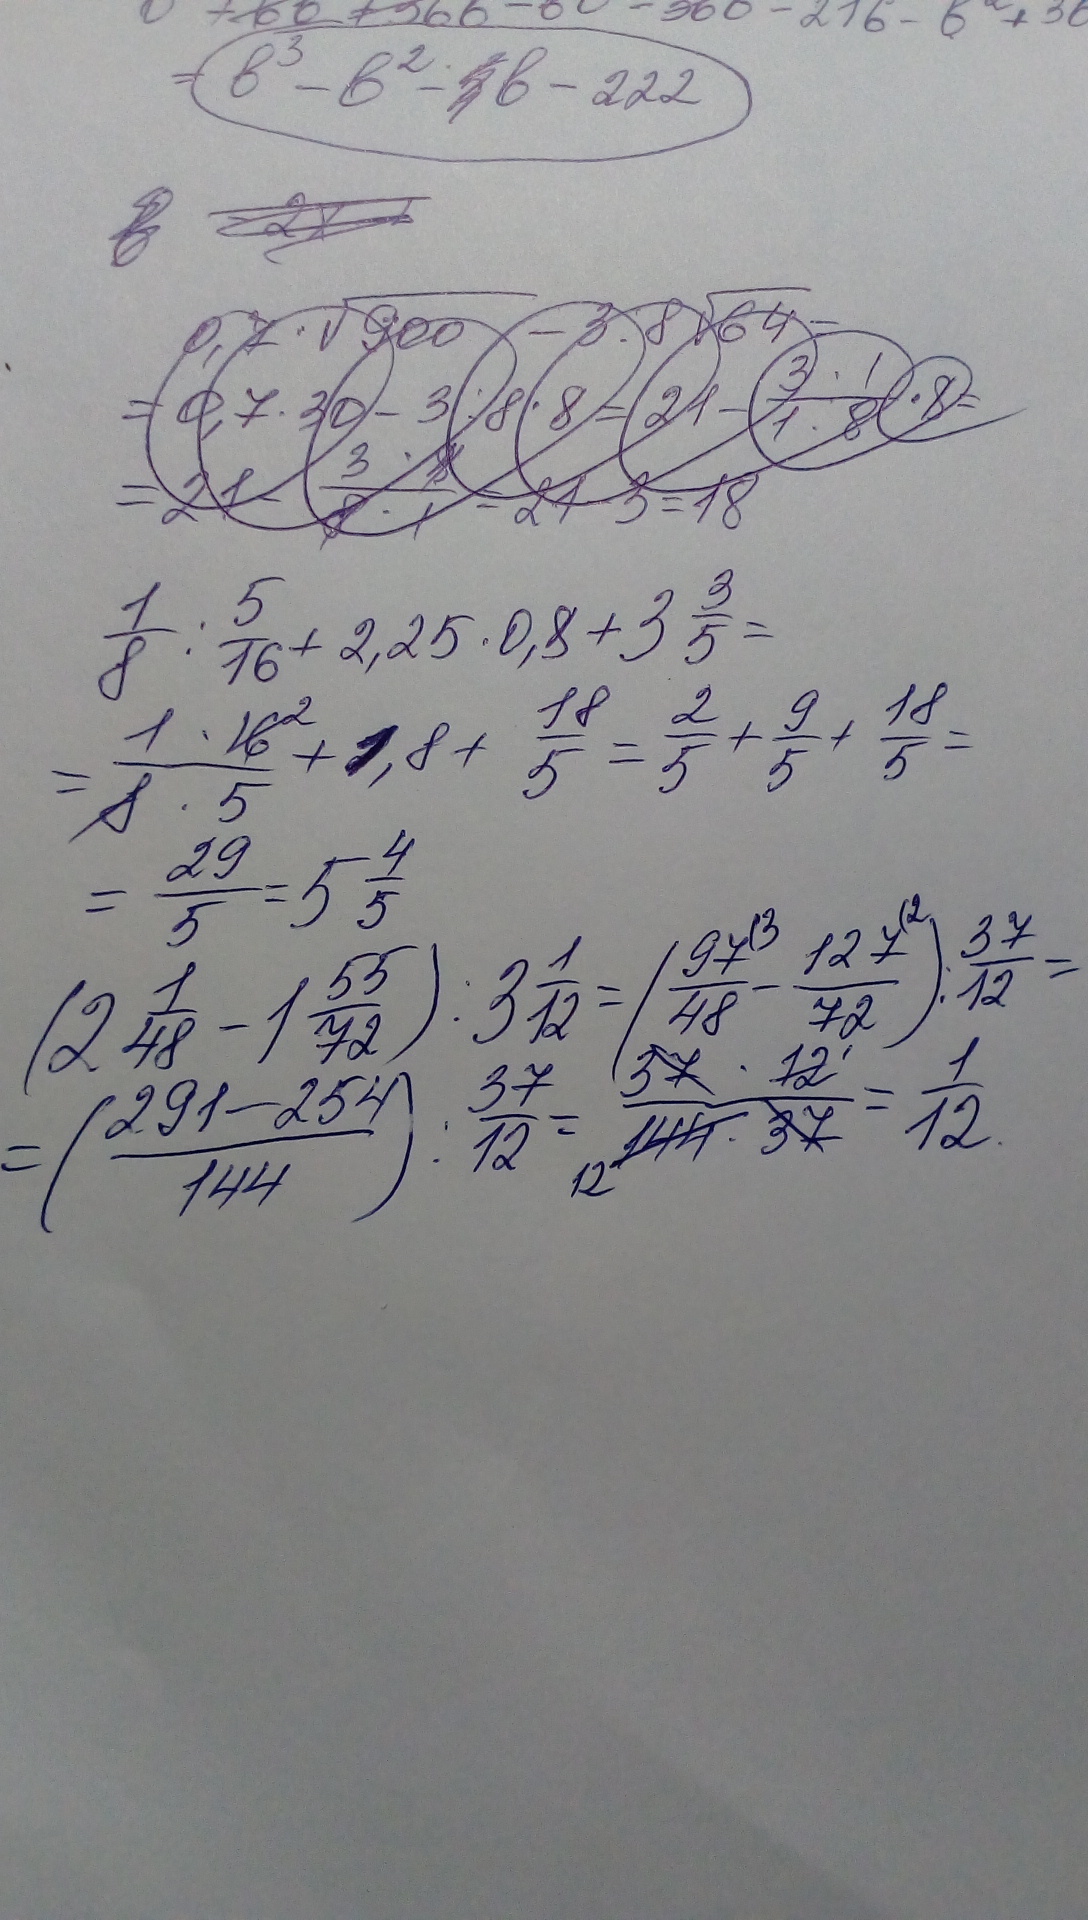 +6b + 36b - 6b - 36b - 216 - b² + 36
= b³ - b² - b - 222
0,7 · √900 - 3 : 8√64 =
= 0,7 · 30 - 3 : 8 · 8 = 21 - (3 · 1)/(1 · 8) · 8 =
= 21 - (3 · 8)/(8 · 1) = 21 - 3 = 18
1/8 : 5/16 + 2,25 · 0,8 + 3 3/5 =
= (1 · 16²)/(8 · 5) + 1,8 + 18/5 = 2/5 + 9/5 + 18/5 =
= 29/5 = 5 4/5
(2 1/48 - 1 55/72) : 3 1/12 = (97⁽³/48 - 127⁽²/72) : 37/12 =
= ((291 - 254)/144) : 37/12 = (37 · 12¹)/(₁₂144 · 37) = 1/12.